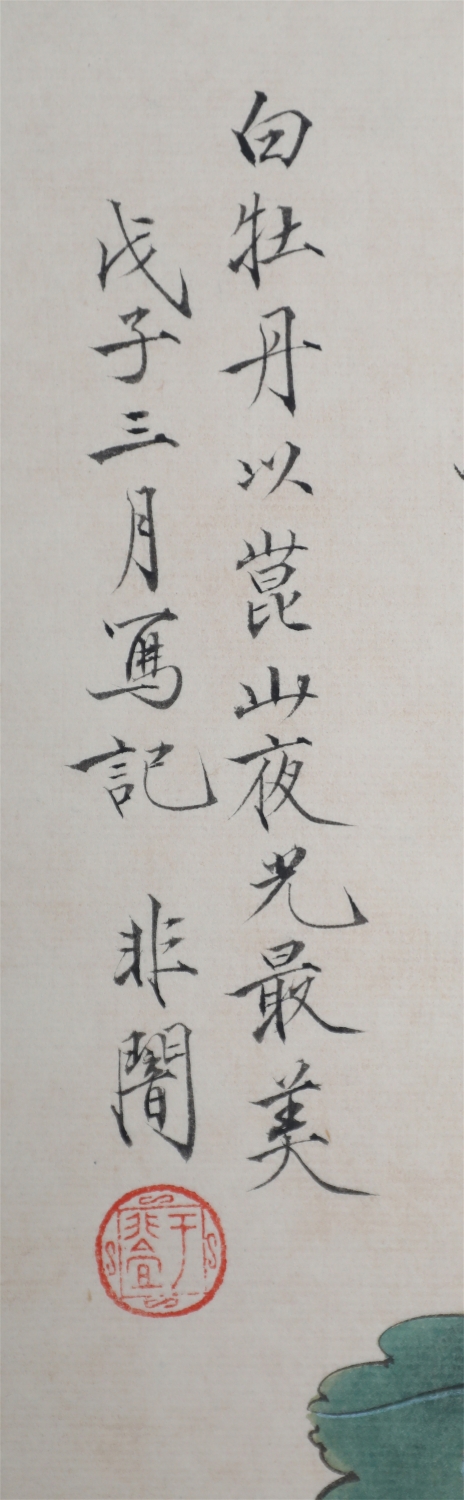 白牡丹以崑山夜光最美
戊子三月寫記 非闇